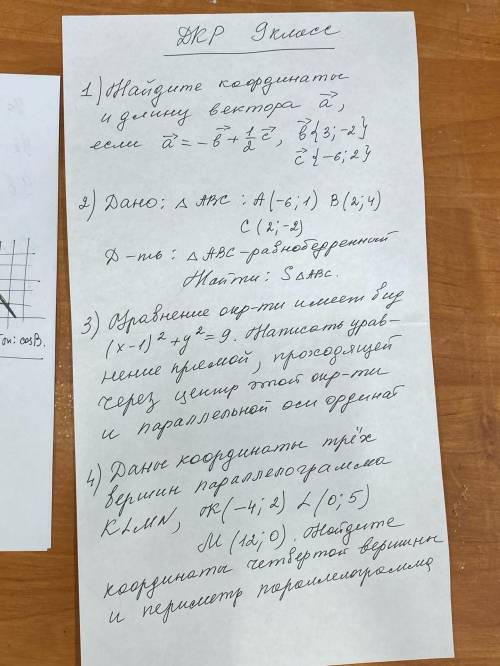 ДКР 9 класс
1) Найдите координаты
и длину вектора a⃗,
если a⃗ = -b⃗ + 1/2 c⃗, b⃗ {3; -2}
c⃗ {-6; 2}
2) Дано: △ ABC: A (-6; 1) B (2; 4)
C (2; -2)
Д-ть: △ ABC - равнобедренный
Найти: S△ABC.
3) Уравнение окр-ти имеет вид
(x-1)² + y² = 9. Написать урав-
нение прямой, проходящей
через центр этой окр-ти
и параллельной оси ординат
4) Даны координаты трёх
вершин параллелограмма
KLMN, K (-4; 2) L (0; 5)
M (12; 0). Найдите
координаты четвертой вершины
и периметр параллелограмма
cosB.